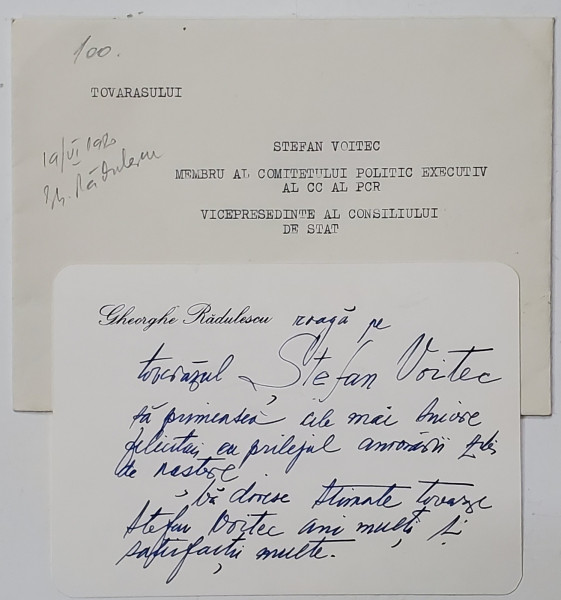 100.
TOVARASULUI
19/VI 1980
Gh. Rădulescu
STEFAN VOITEC
MEMBRU AL COMITETULUI POLITIC EXECUTIV
AL CC AL PCR
VICEPRESEDINTE AL CONSILIULUI
DE STAT
Gheorghe Rădulescu roagă pe
tovarășul Ștefan Voitec
să primească cele mai sincere
felicitări cu prilejul aniversării zilei
de naștere.
Vă doresc stimate tovarășe
Ștefan Voitec ani mulți și
satisfacții multe.